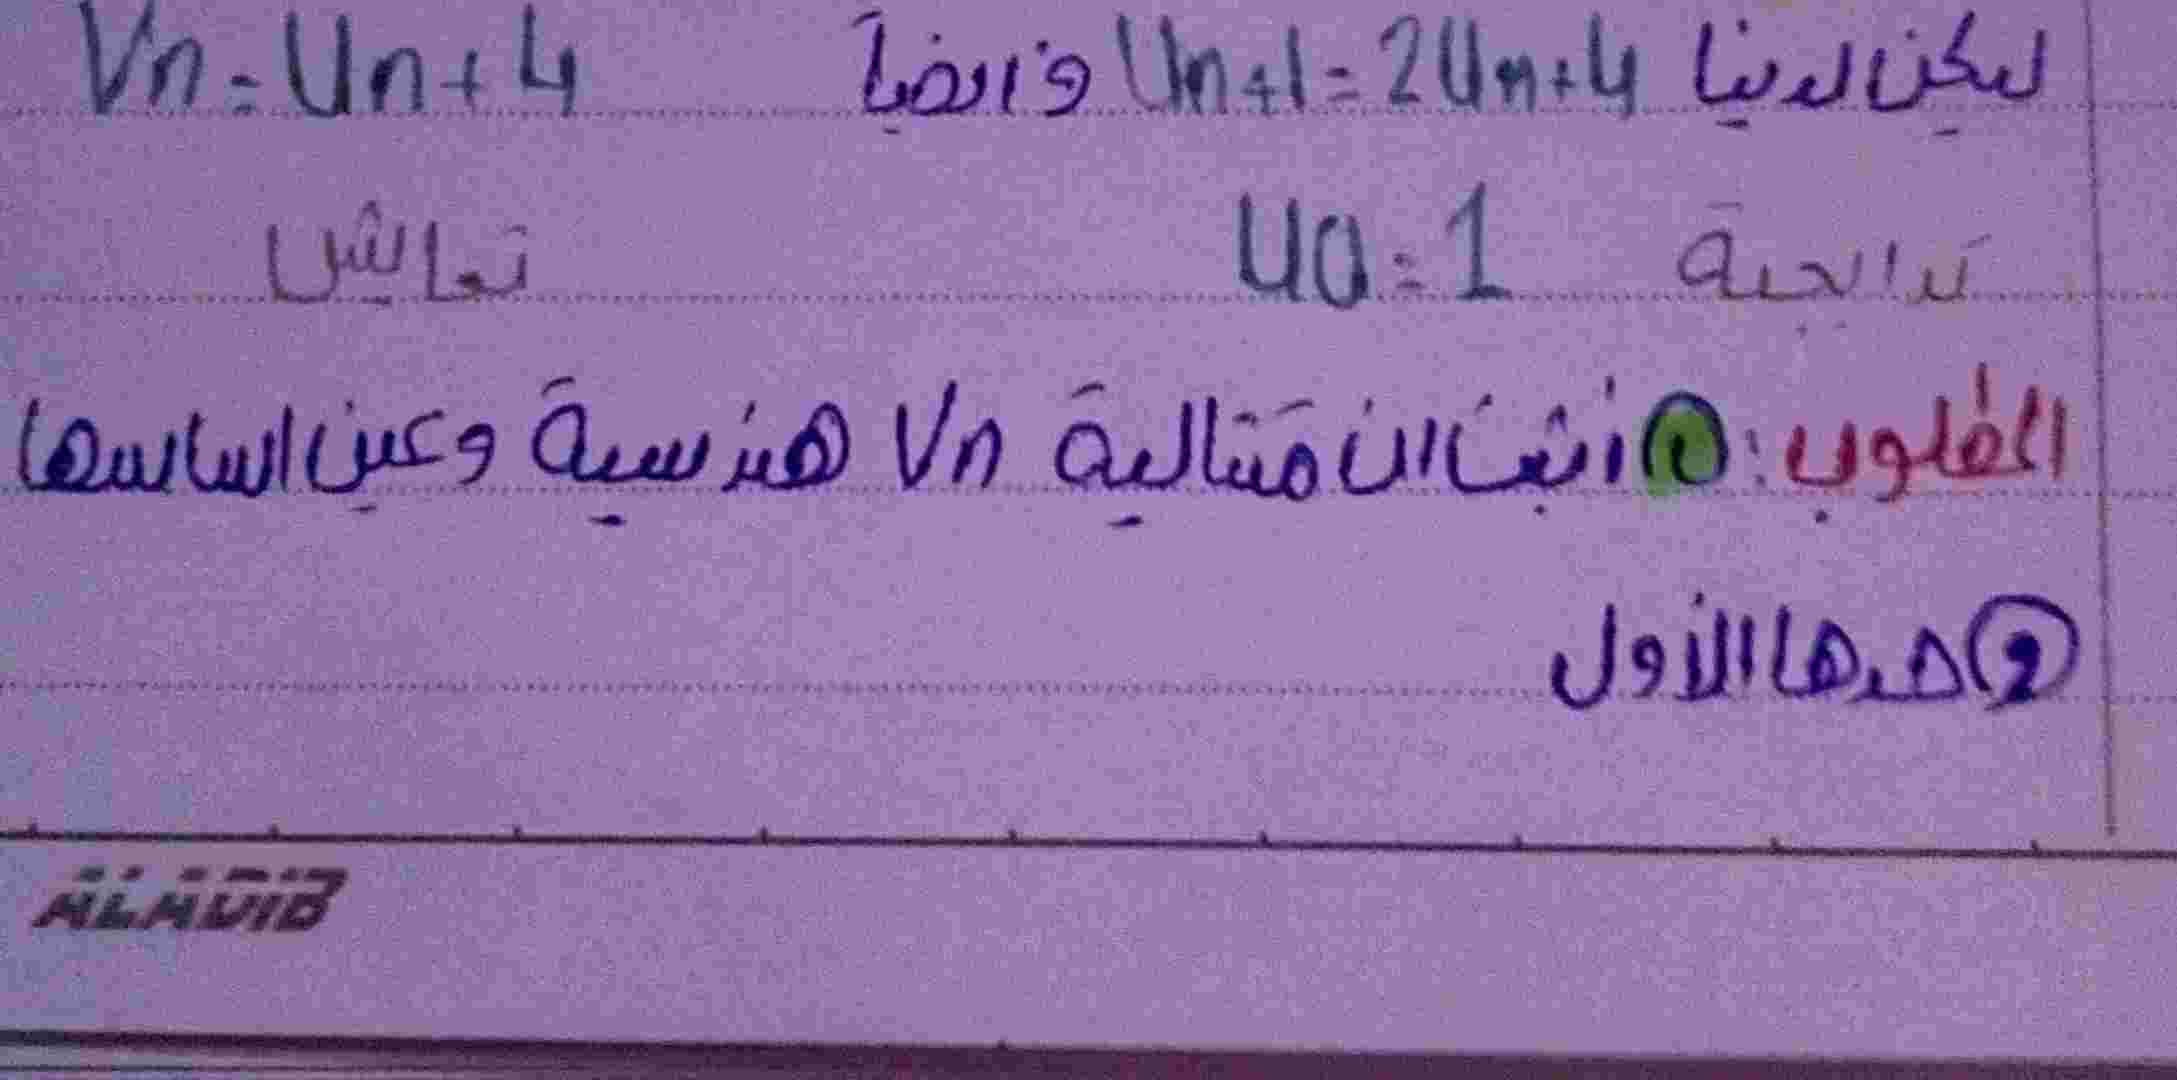 ليكن لدينا Un+1=2Un+4 و ايضا Vn=Un+4
U0=1
المطلوب: ① أثبت ان متتالية Vn هندسية وعين اساسها
② حدها الأول
ALADIB